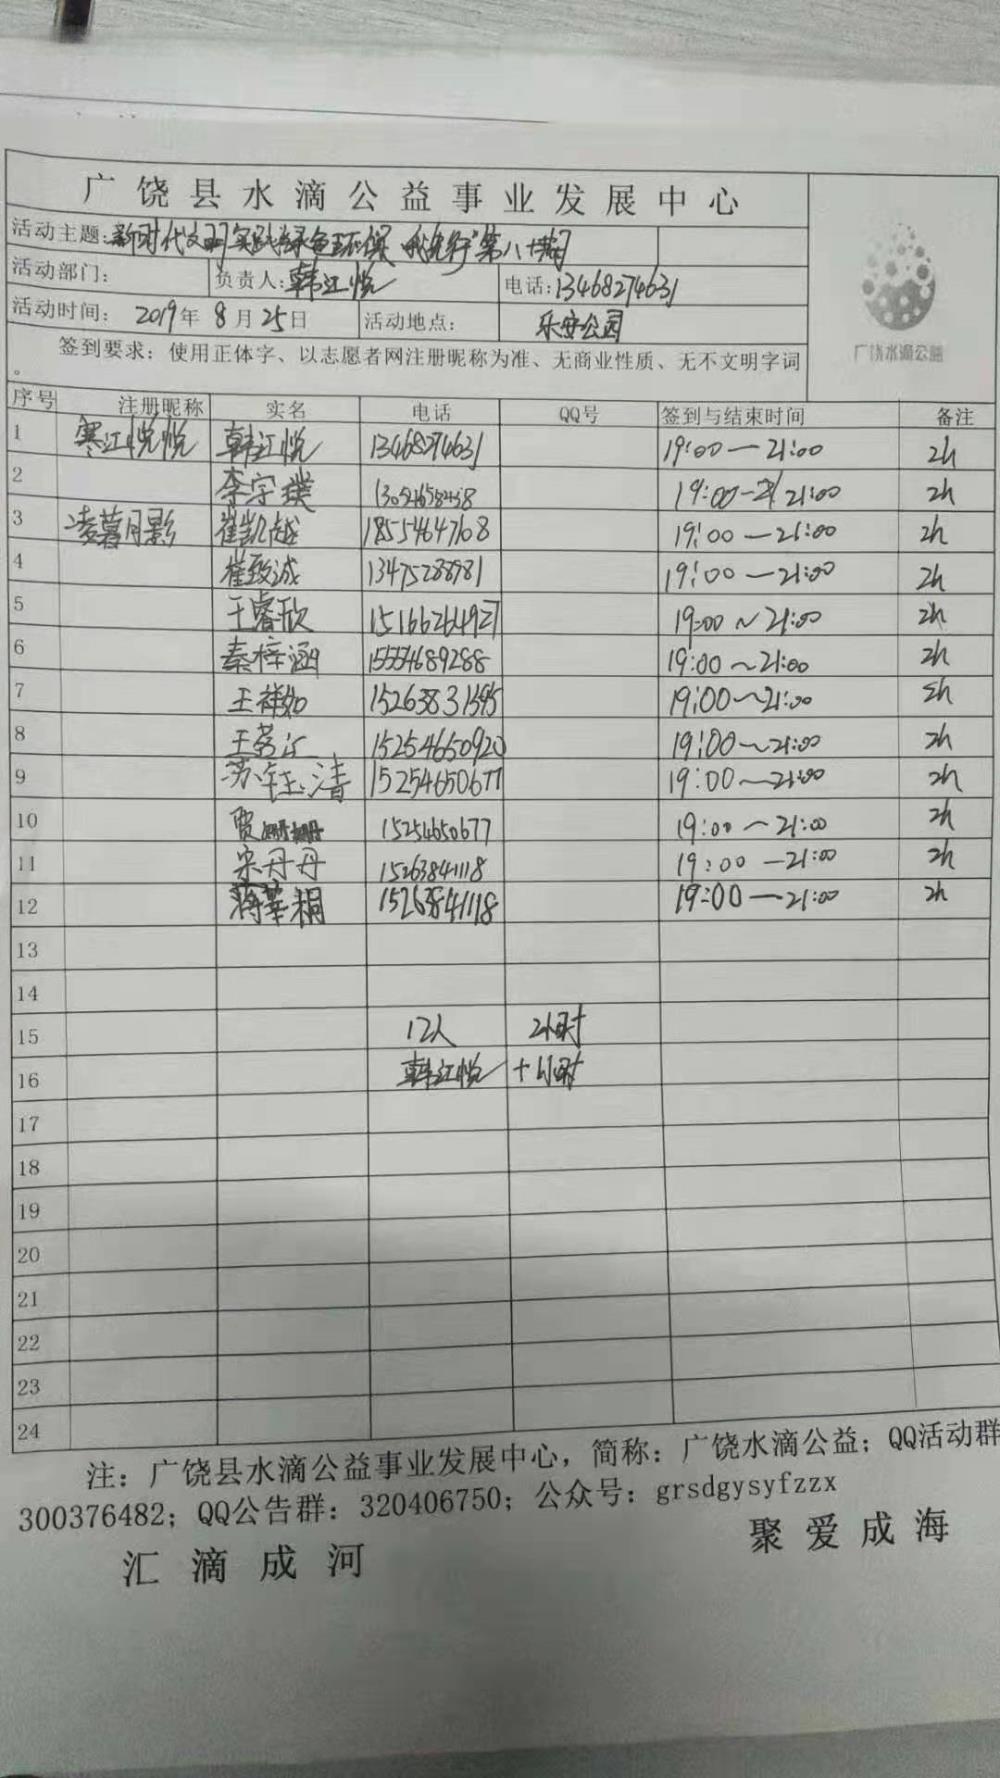 广饶县水滴公益事业发展中心
活动主题：新时代文明实践绿色环保 我先行"第八十期
活动部门： 负责人：韩江悦 电话：13468274631
活动时间： 2019年8月25日 活动地点： 乐安公园
签到要求：使用正体字、以志愿者网注册昵称为准、无商业性质、无不文明字词
。
广饶水滴公益
序号 注册昵称 实名 电话 QQ号 签到与结束时间 备注
1 寒江悦悦 韩江悦 13468274631 19:00—21:00 2h
2 李宇璞 19:00-21:00 2h
3 凌暮月影 崔凯越 18554647108 19:00—21:00 2h
4 崔致诚 13475288981 19:00—21:00 2h
5 于睿欣 15166264927 19:00~21:00 2h
6 秦梓涵 15554689288 19:00~21:00 2h
7 王祥如 15263831595 19:00~21:00 2h
8 15254650920 19:00~21:00 2h
9 苏钰清 15254650677 19:00—21:00 2h
10 贾珊珊 15254650677 19:00~21:00 2h
11 宋丹丹 15263841118 19:00—21:00 2h
12 蒋莘桐 15263841118 19:00—21:00 2h
13
14
15 12人 2小时
16 韩江悦 +1小时
17
18
19
20
21
22
23
24
注：广饶县水滴公益事业发展中心，简称：广饶水滴公益；QQ活动群
300376482；QQ公告群：320406750；公众号：grsdgysyfzzx
汇滴成河 聚爱成海